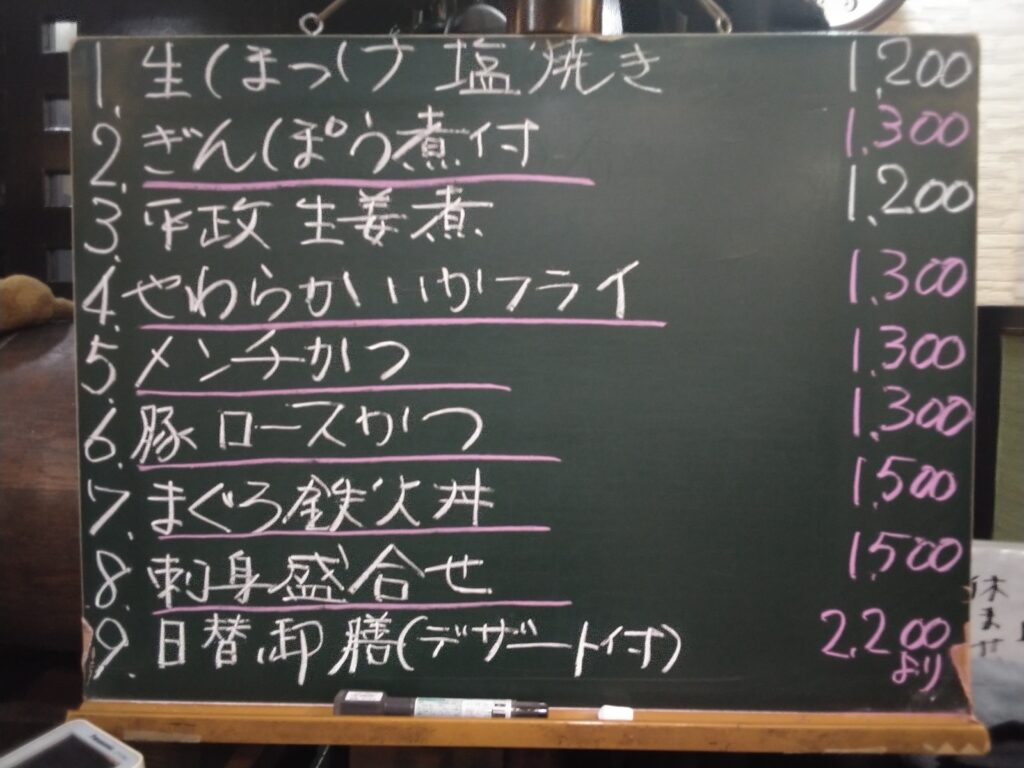 1. 生ほっけ 塩焼き 1,200
2. ぎんぽう煮付 1,300
3. 平政 生姜煮 1,200
4. やわらかいかフライ 1,300
5. メンチかつ 1,300
6. 豚ロースかつ 1,300
7. まぐろ鉄火丼 1,500
8. 刺身盛合せ 1,500
9. 日替御膳(デザート付) 2,200
より
休ませ